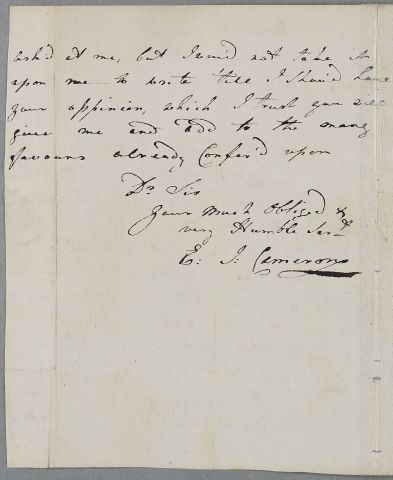 ask'd at me, but I wou'd not take it
upon me to write 'till I Shou'd have
your oppinion, which I trust you will
give me and add to the many
favours already Confer'd upon
Dr Sir
Your Much Obliged &
very Humble Sert
E: J: Cameron